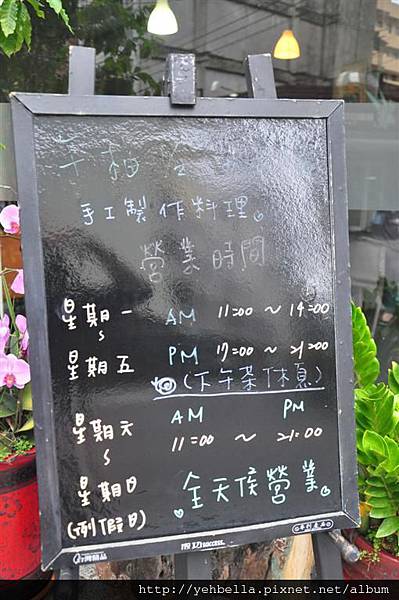 手工製作料理。
營業時間
星期一 AM 11:00 ～ 14:00
星期五 PM 17:00 ～ 21:00
(下午茶休息)
星期六 AM PM
11:00 ～ 21:00
星期日 全天候營業
(例假日)
成功success.
http://yehbella.pixnet.net/album